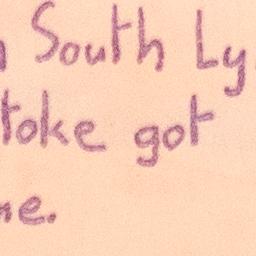 South Ly
toke got
ne.